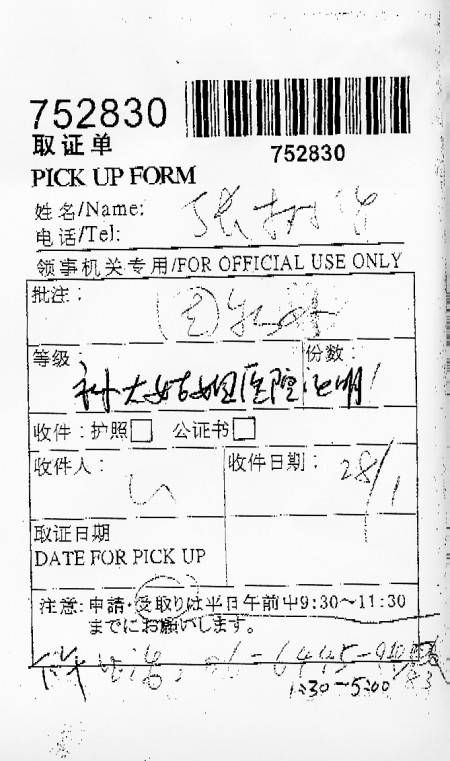 752830
752830
取证单
PICK UP FORM
姓名/Name: 张树
电话/Tel:
领事机关专用/FOR OFFICIAL USE ONLY
批注：
等级：
份数：
医院证明
收件：护照□ 公证书□
收件人：
收件日期：28/1
取证日期
DATE FOR PICK UP
注意: 申請·受取りは平日午前中9:30～11:30
までにお願いします。
06-6445-
1:30～5:00